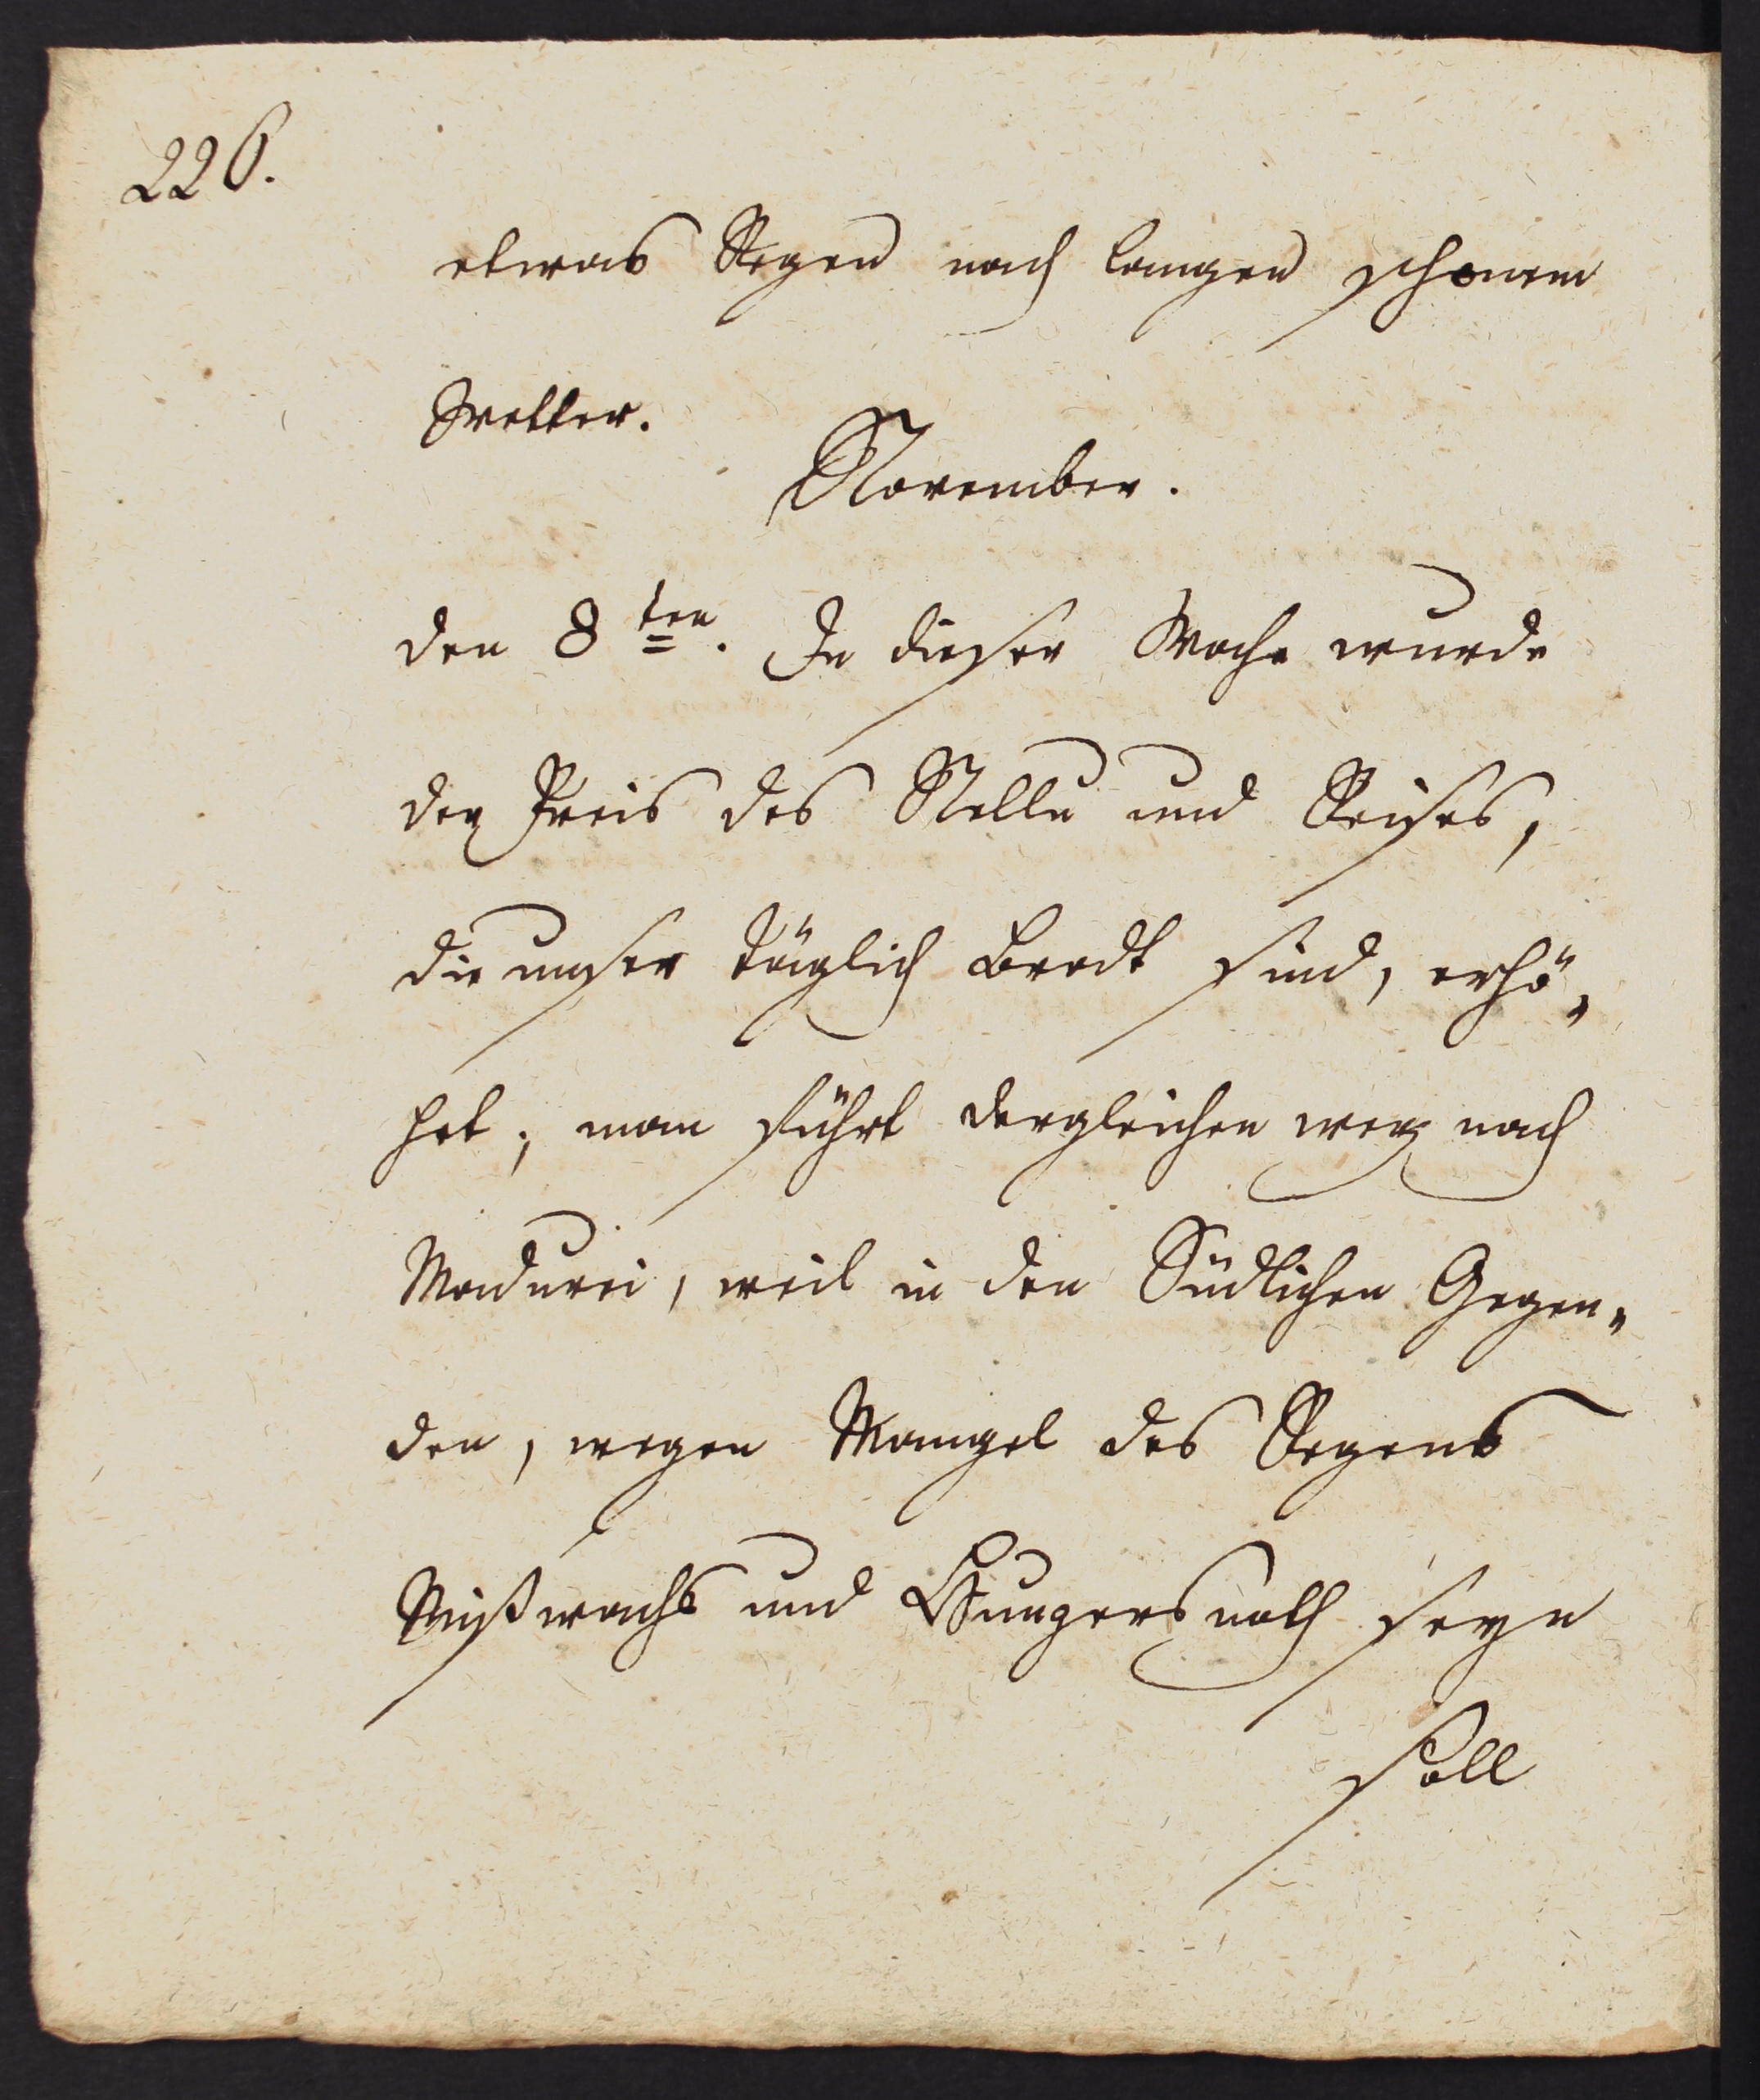 226.
etwas Regen nach langen schönem
Wetter.
November.
den 8ten. In dieser Woche wurde
der Preis des Nellu und Reises,
die unser täglich Brodt sind, erhö„
het; man führt dergleichen weg nach
Madurei, weil in den Südlichen Gegen„
den, wegen Mangel des Regens
Mißwachs und Hungersnoth seyn
soll